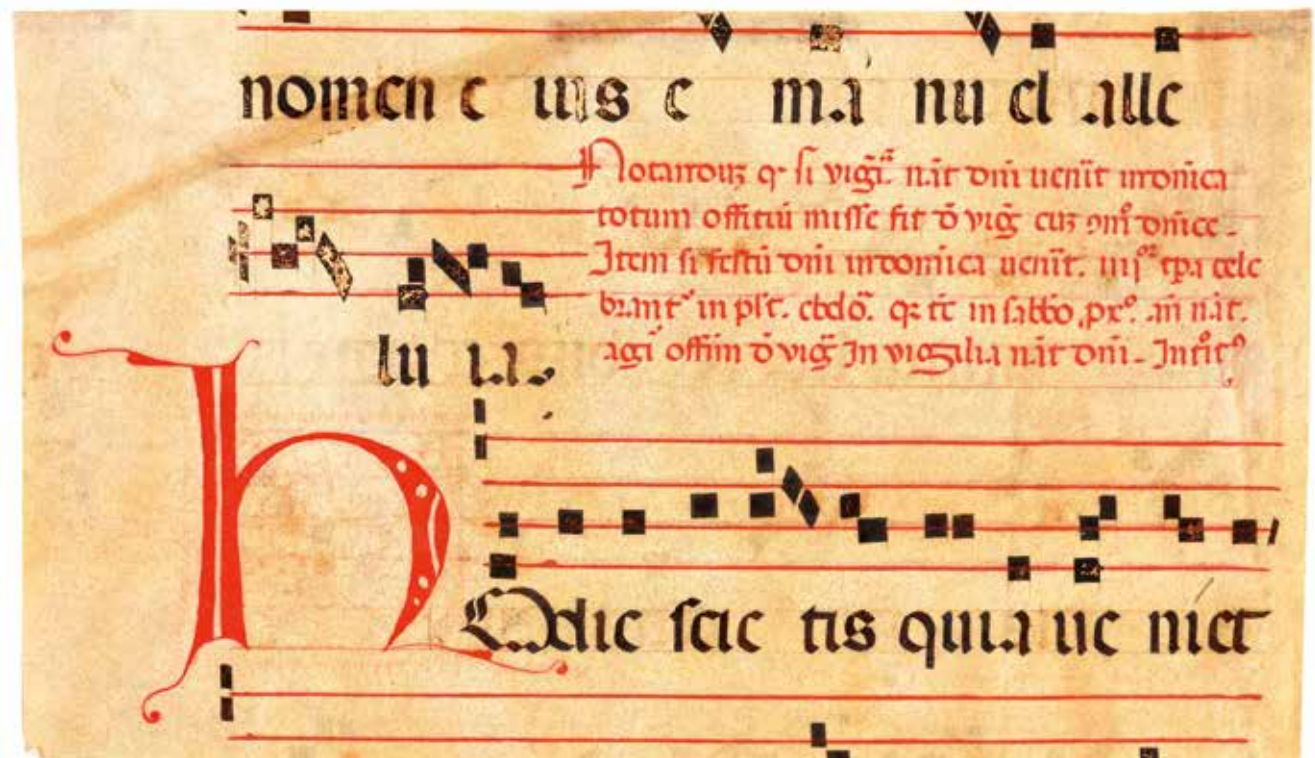 nomen e ius e ma nu el alle
Notandum q si vigi. nat dni uenit in dominica
totum offitiu misse fit d vig cuz
Item si festu dni in dominica uenit. iiij tpa cele
brant in in sabbo nat.
agi offim d vig In vigilia nat dni. Introit
lu ia.
hOdie scie tis quia ue niet